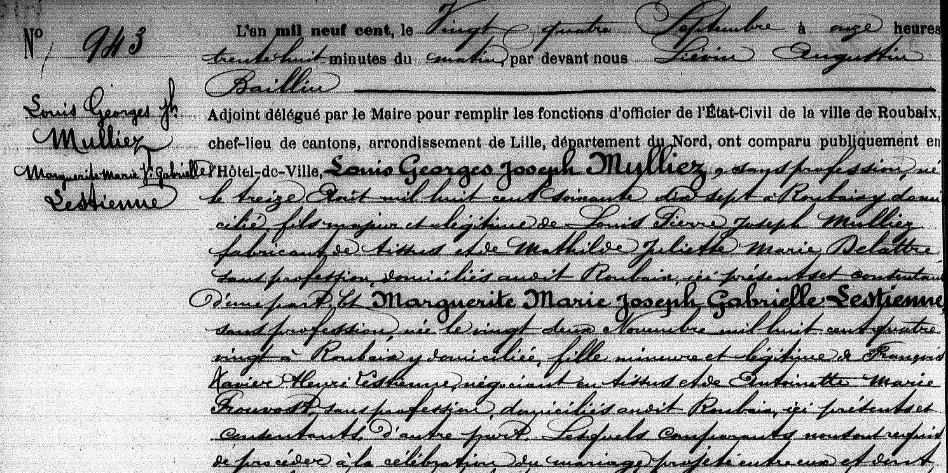 N° 943
Louis Georges Jh
Mulliez
Marguerite Marie Jh Gabrielle
Lestienne
L'an mil neuf cent, le Vingt quatre Septembre à onze heures
trente huit minutes du matin, par devant nous Liévin Augustin
Baillin
Adjoint délégué par le Maire pour remplir les fonctions d'officier de l'État-Civil de la ville de Roubaix,
chef-lieu de cantons, arrondissement de Lille, département du Nord, ont comparu publiquement en
l'Hôtel-de-Ville, Louis Georges Joseph Mulliez, sans profession, né
le treize Août mil huit cent soixante dix sept à Roubaix y domi
cilié, fils majeur et légitime de Louis Pierre Joseph Mulliez
fabricant de tissus et de Mathilde Juliette Marie Delattre
sans profession, domiciliés audit Roubaix, ici présents et consentants
d'une part. Et Marguerite Marie Joseph Gabrielle Lestienne
sans profession, née le vingt deux Novembre mil huit cent quatre
vingt à Roubaix y domiciliée, fille mineure et légitime de François
Xavier Henri Lestienne, négociant en tissus et de Antoinette Marie
Prouvost, sans profession, domiciliés audit Roubaix, ici présents et
consentants, d'autre part. Lesquels comparants nous ont requis
de procéder à la célébration du mariage projeté entre eux et dont